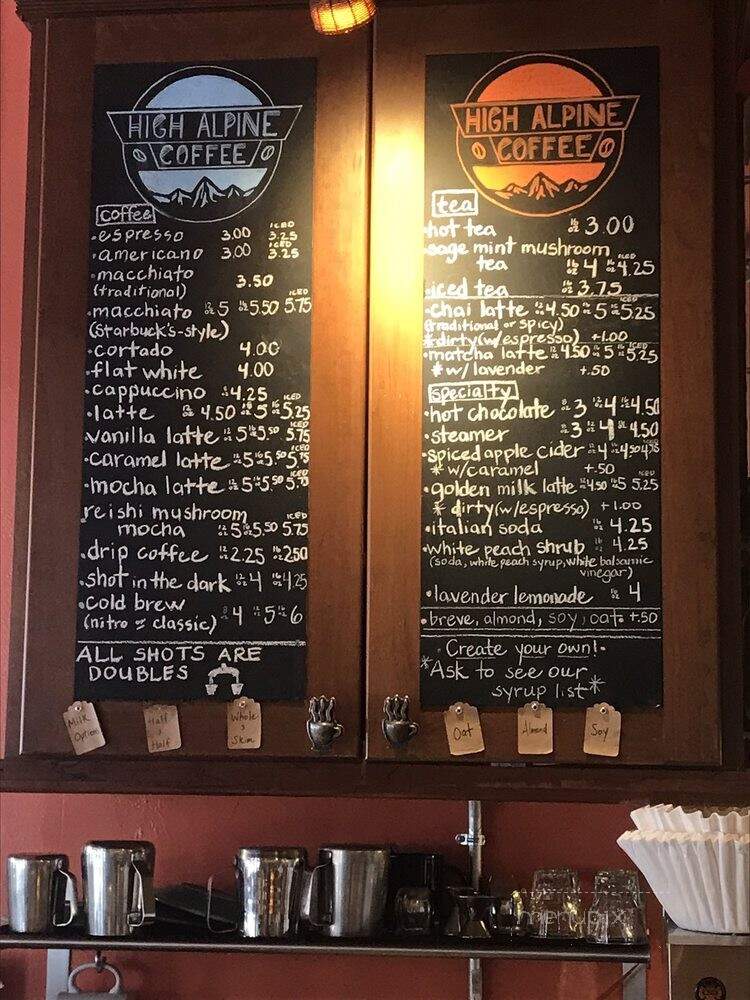 HIGH ALPINE
COFFEE
coffee
ICED
• espresso 3.00 3.25
ICED
• americano 3.00 3.25
• macchiato
(traditional) 3.50
ICED
• macchiato 12oz 5 16oz 5.50 5.75
(Starbuck's-style)
• cortado 4.00
• flat white 4.00
• cappuccino 4.25
ICED
• latte 12oz 4.50 16oz 5 16oz 5.25
ICED
• vanilla latte 12oz 5 16oz 5.50 5.75
ICED
• caramel latte 12oz 5 16oz 5.50 5.75
ICED
• mocha latte 12oz 5 16oz 5.50 5.75
• reishi mushroom
ICED
mocha 12oz 5 16oz 5.50 5.75
• drip coffee 12oz 2.25 16oz 2.50
• shot in the dark 12oz 4 16oz 4.25
• cold brew
(nitro or classic) 8oz 4 12oz 5 16oz 6
ALL SHOTS ARE
DOUBLES
HIGH ALPINE
COFFEE
tea
• hot tea 16oz 3.00
• sage mint mushroom
ICED
tea 16oz 4 16oz 4.25
• iced tea 16oz 3.75
ICED
• chai latte 12oz 4.50 16oz 5 16oz 5.25
(traditional or spicy)
* dirty (w/espresso) +1.00
ICED
• matcha latte 12oz 4.50 16oz 5 16oz 5.25
* w/ lavender +.50
specialty
• hot chocolate 8oz 3 12oz 4 16oz 4.50
• steamer 8oz 3 12oz 4 16oz 4.50
ICED
• spiced apple cider 12oz 4 16oz 4.50 4.75
* w/caramel +.50
ICED
• golden milk latte 12oz 4.50 16oz 5 5.25
* dirty (w/espresso) +1.00
• italian soda 16oz 4.25
• white peach shrub 16oz 4.25
(soda, white peach syrup, white balsamic
vinegar)
• lavender lemonade 16oz 4
• breve, almond, soy, oat +.50
• Create your own! •
* Ask to see our
syrup list *
Milk
Options
Half
&
Half
Whole
&
Skim
Oat
Almond
Soy
menupix